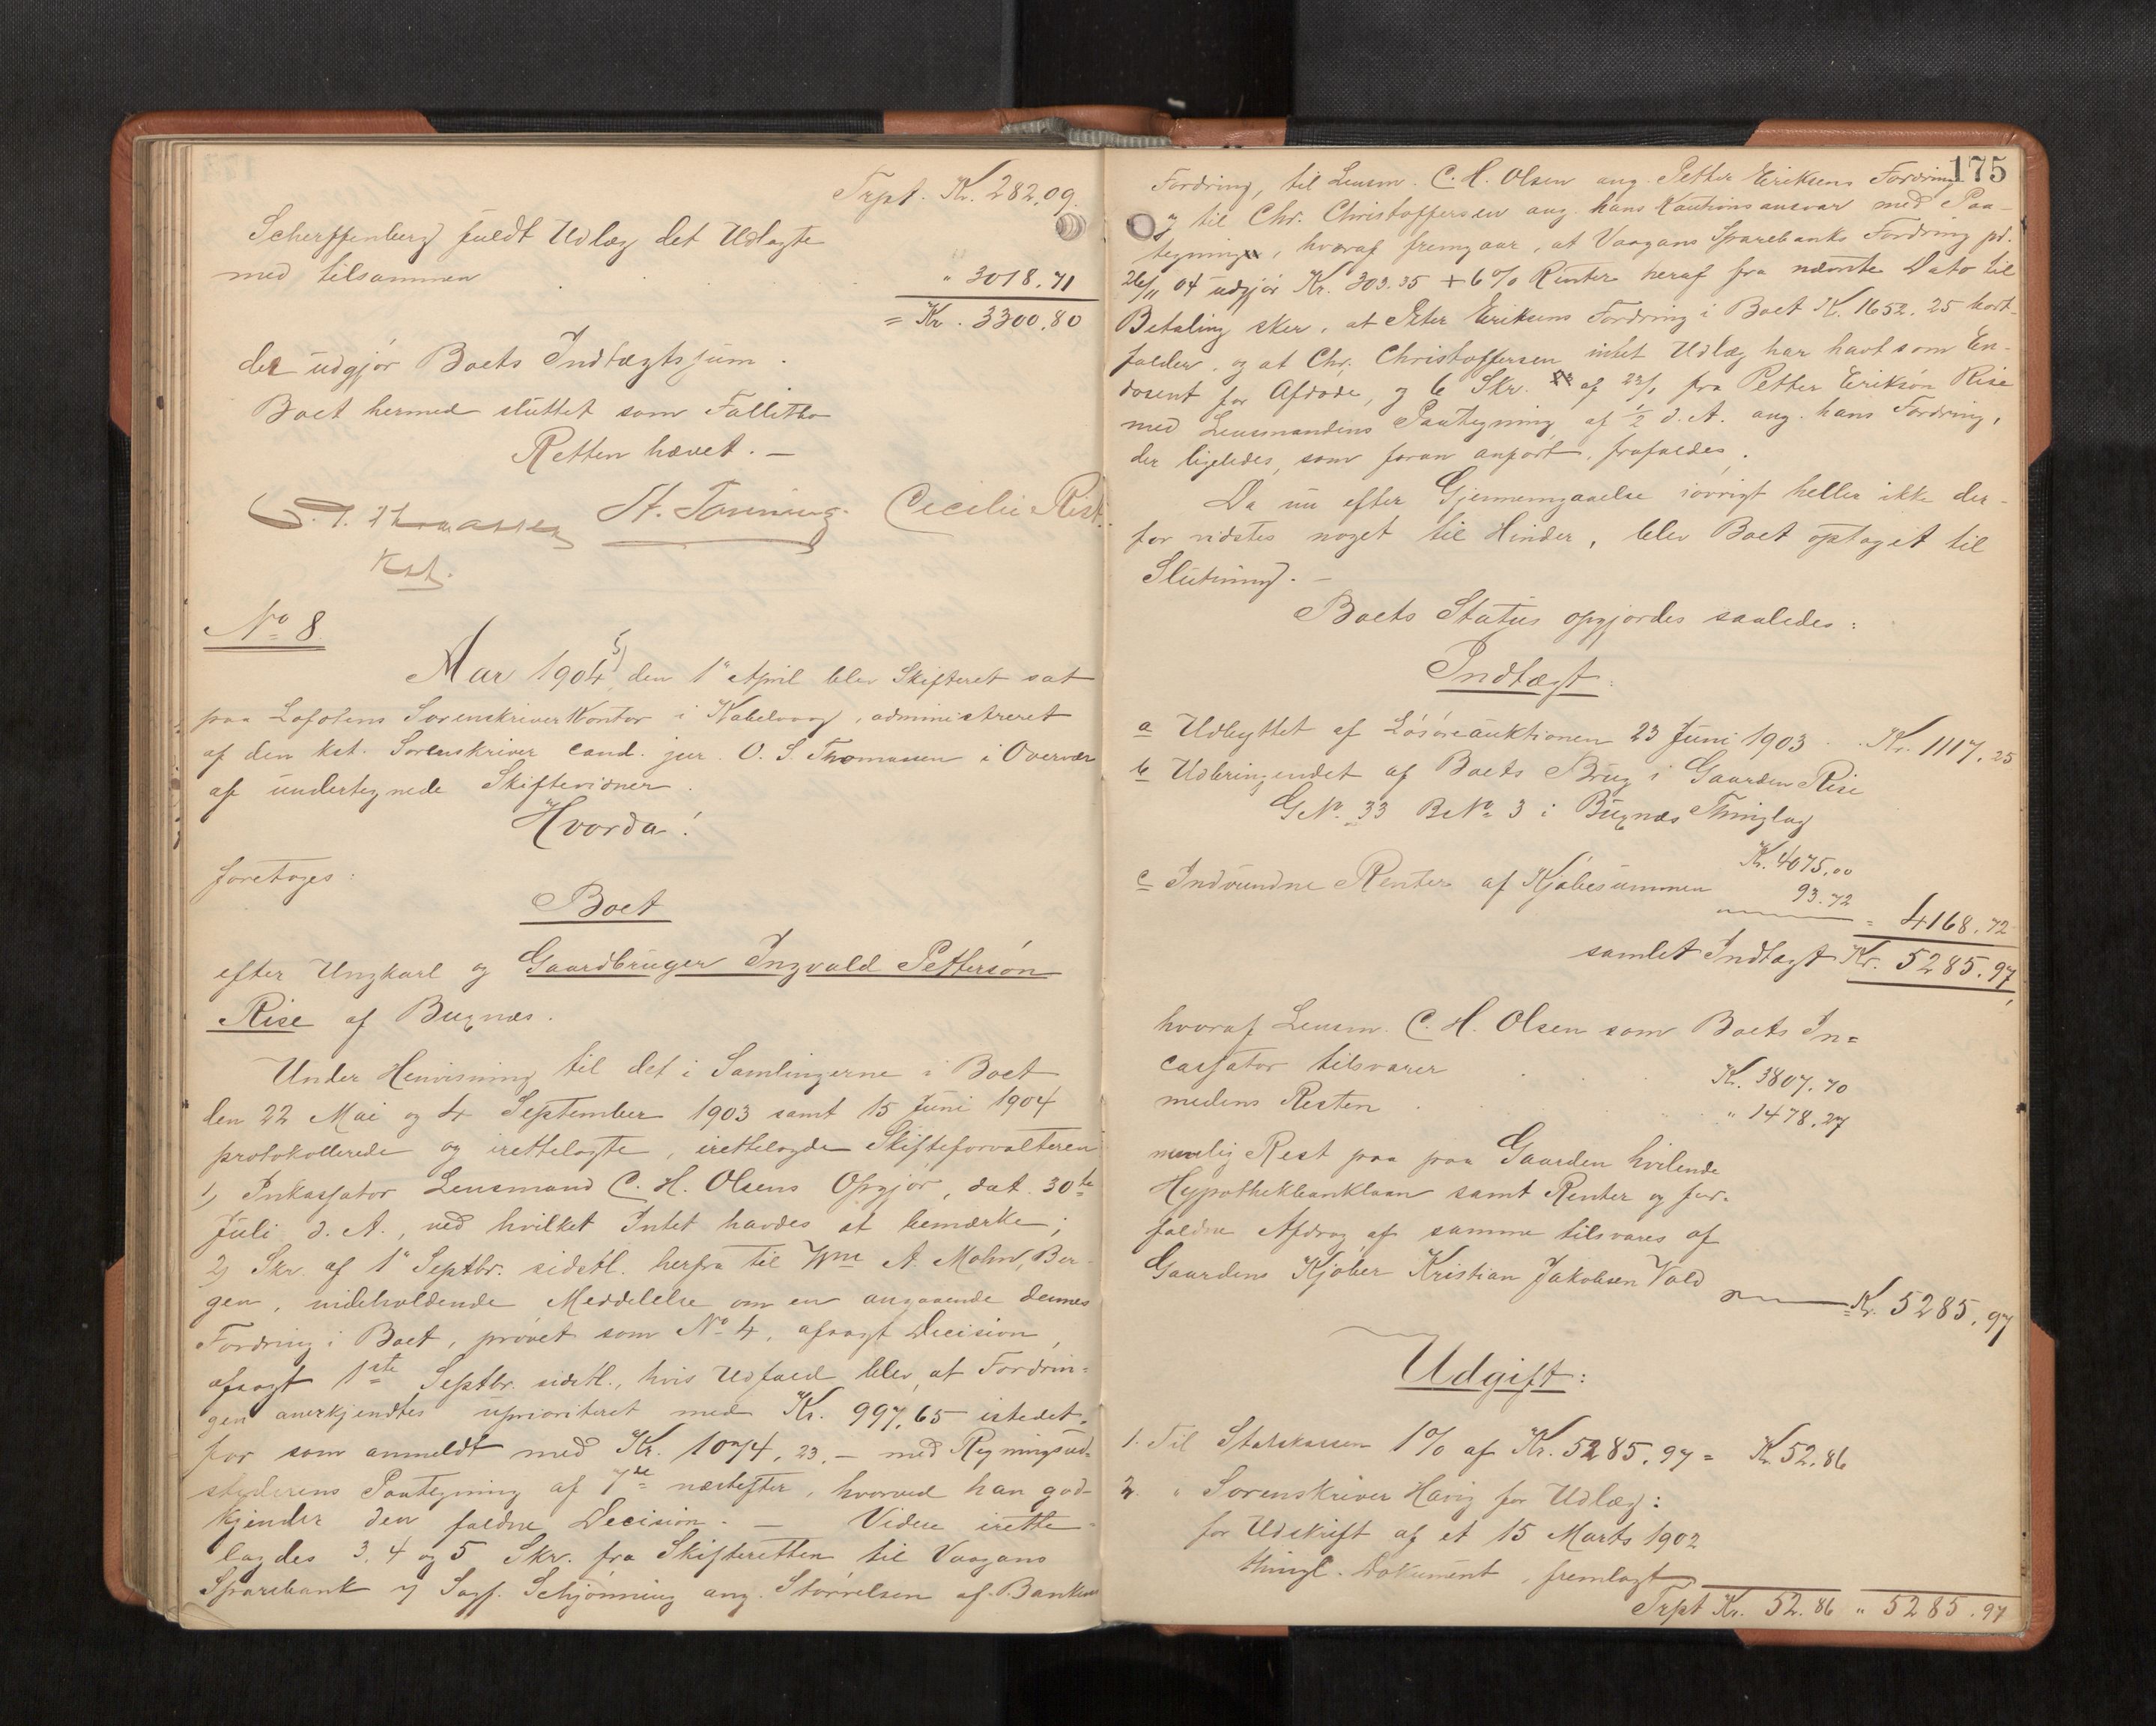 Trpt. Kr. 282.09.
Scherffenberg fuldt Udlæg det Udlagte
med tilsammen " 3018.71
= Kr. 3300.80
der udgjør Boets Indtægtssum.
Boet hermed sluttet som Fallitbo
Retten hævet. —
O. S. Thomassen Cecilie Rist.
Kst.
No 8
Aar 1904 5) den 1" April blev Skifteret sat
paa Lofotens Sorenskriver Kontor i Kabelvaag, administreret
af den kst. Sorenskriver cand. jur. O. S. Thomassen i Overvær
af undertegnede Skiftevidner.
Hvorda!
foretoges:
Boet
efter Ungkarl og Gaardbruger Ingvald Petterson
Rise af Buxnæs.
Under Henvisning til det i Samlingerne i Boet
den 22 Mai og 4 September 1903 samt 15 Juni 1904
protokollerede og irettelagte, irettelagde Skifteforvalteren
1) Inkassator Lensmand C. H. Olsens Opgjør, dat. 30te
Juli d. A., ved hvilket Intet havdes at bemærke;
2) Skr. af 1" Septbr. sidstl. herfra til Wm A. Mohn, Ber-
gen, indeholdende Meddelelse om en angaaende dennes
Fordring i Boet, prøvet som No 4, afsagt Decision,
afsagt 1ste Septbr. sidstl., hvis Udfald blev, at Fordrin-
gen anerkjendtes uprioriteret med Kr. 997,65 istedet-
for som anmeldt med Kr. 1074,23. — med Regningsud-
stederens Paategning af 7de næstefter, hvorved han god-
kjender den faldne Decision. — Videre irette-
lagdes 3, 4 og 5 Skr. fra Skifteretten til Vaagans
Sparebank og Sagf. Schjønning ang. Størrelsen af Bankens
175
Fordring, til Lensm. C. H. Olsen ang. Petter Eriksens Fordring
og til Chr. Christoffersen ang. hans Kautionsansvar med Paa-
tegning, hvoraf fremgaar, at Vaagans Sparebanks Fordring pd.
26/11 04 udgjør Kr. 303.35 + 6% Renter heraf fra nævnte Dato til
Betaling sker, at Peter Eriksens Fordring i Boet Kr. 1652.25 bort-
falder, og at Chr. Christoffersen intet Udlæg har havt som En-
dosent for Afdøde, og 6 Skr. af 23/1 fra Petter Erikson Rise
med Lensmandens Paategning af 1/2 d. A. ang. hans Fordring,
der ligeledes, som foran anført, frafaldes.
Da nu efter Gjennemgaaelse iøvrigt heller ikke der-
for vidstes noget til Hinder, blev Boet optaget til
Slutning. —
Boets Status opgjordes saaledes:
Indtægt:
a Udbyttet af Løsøreauktionen 23 Juni 1903 Kr. 1117.25
b Udbringendet af Boets Brug i Gaarden Rise
GNo. 33 BNo 3 i Buxnæs Thinglag
Kr. 4075.00
c Indvundne Renter af Kjøbesummen 93.72
= 4168.72
samlet Indtægt Kr. 5285.97
hvoraf Lensm. C. H. Olsen som Boets In=
cassator tilsvarer Kr. 3807.70
medens Resten " 1478.27
nemlig Rest paa paa Gaarden hvilende
Hypothekbanklaan samt Renter og for-
faldne Afdrag af samme tilsvares af
Gaardens Kjøber Kristian Jakobsen Vold
= Kr. 5285.97
Udgift:
1. Til Statskassen 1% af Kr. 5285.97 = Kr. 52.86
2. " Sorenskriver Havig for Udlæg:
for Udskrift af et 15 Marts 1902
thingl. Dokument, fremlagt
Trpt Kr. 52.86 " 5285.97